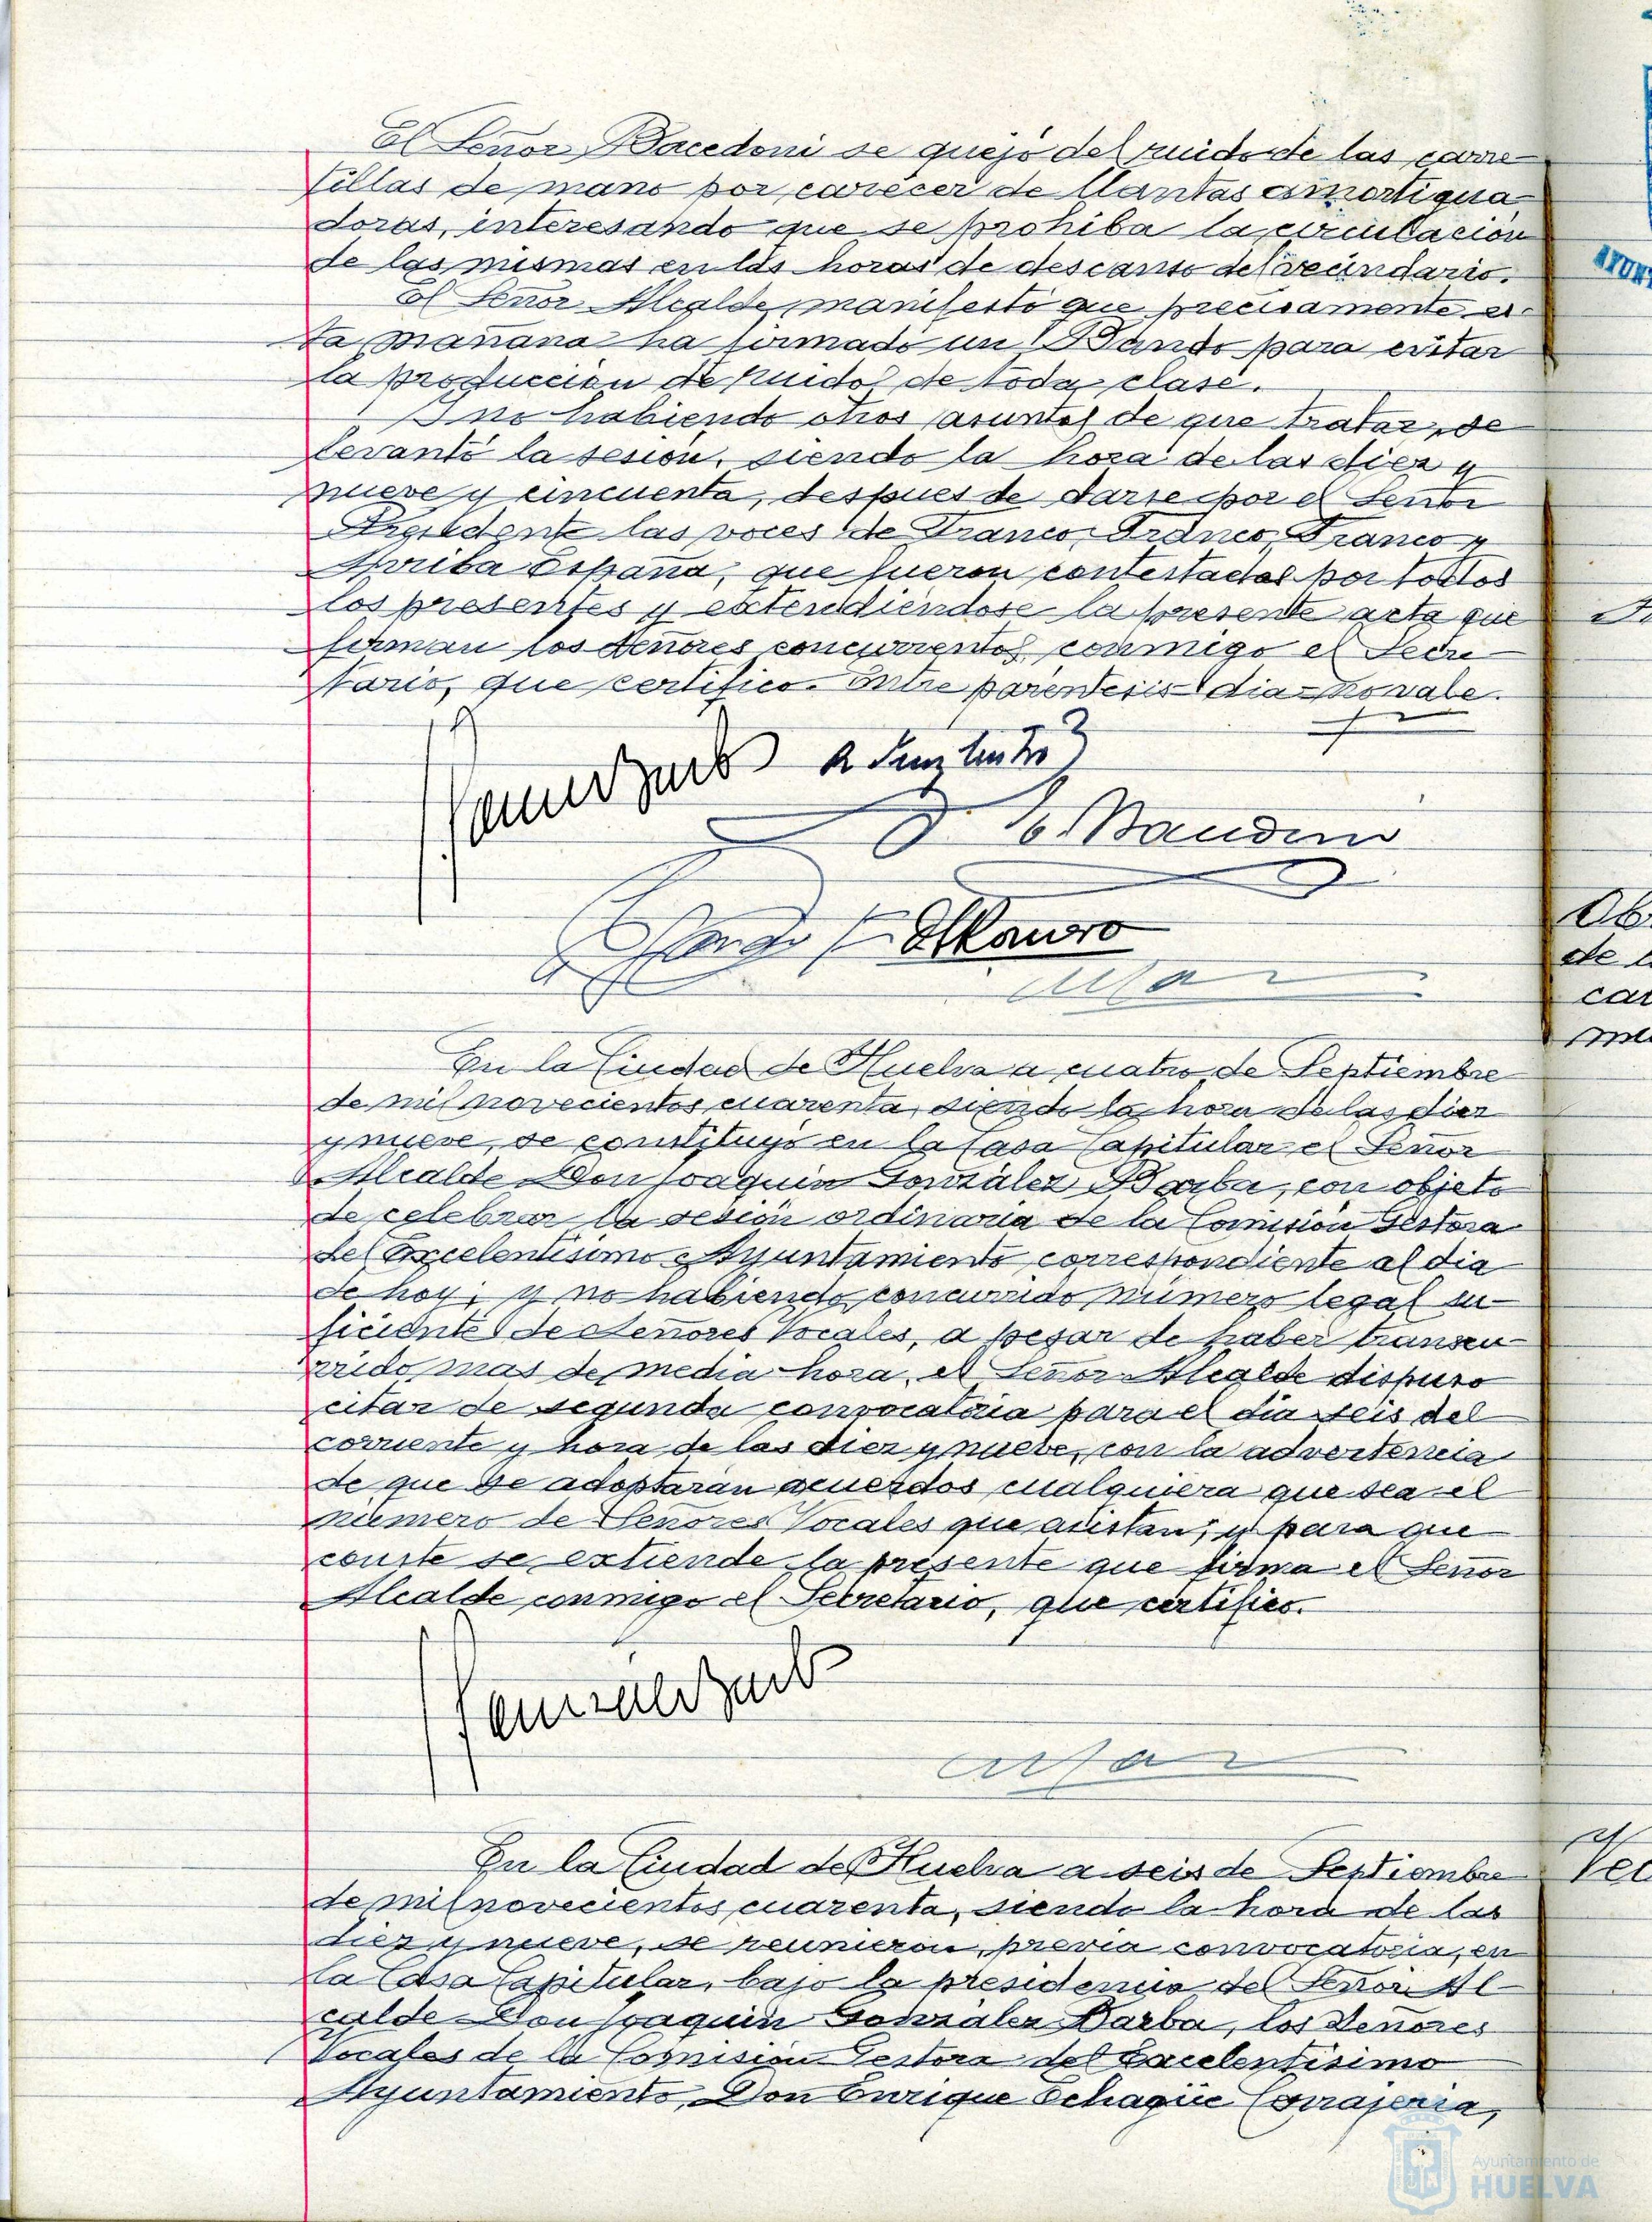 El Señor Bacedoni se quejó del ruido de las carre-
tillas de mano por carecer de llantas amortigua-
doras, interesando que se prohiba la circulación
de las mismas en las horas de descanso del vecindario.
El Señor Alcalde manifestó que precisamente es-
ta mañana ha firmado un Bando para evitar
la producción de ruidos de toda clase.
Y no habiendo otros asuntos de que tratar, se
levantó la sesión, siendo la hora de las diez y
nueve y cincuenta, despues de darse por el Señor
Presidente las voces de Franco, Franco, Franco y
Arriba España, que fueron contestadas por todos
los presentes y extendiéndose la presente acta que
firman los Señores concurrentes conmigo el Secre-
tario, que certifico. Entre parentesis=dia=no vale.
En la Ciudad de Huelva a cuatro de Septiembre
de mil novecientos cuarenta, siendo la hora de las diez
y nueve, se constituyó en la Casa Capitular el Señor
Alcalde Don Joaquin González Barba, con objeto
de celebrar la sesión ordinaria de la Comisión Gestora
del Excelentísimo Ayuntamiento correspondiente al dia
de hoy; y no habiendo concurrido número legal su-
ficiente de Señores Vocales, a pesar de haber transcu-
rrido mas de media hora, el Señor Alcalde dispuso
citar de segunda convocatoria para el dia seis del
corriente y hora de las diez y nueve, con la advertencia
de que se adoptarán acuerdos cualquiera que sea el
número de Señores Vocales que asistan; y para que
conste se extiende la presente que firma el Señor
Alcalde conmigo el Secretario, que certifico.
En la Ciudad de Huelva a seis de Septiembre
de mil novecientos cuarenta, siendo la hora de las
diez y nueve, se reunieron, previa convocatoria, en
la Casa Capitular, bajo la presidencia del Señor Al-
calde Don Joaquin González Barba, los Señores
Vocales de la Comisión Gestora del Excelentísimo
Ayuntamiento, Don Enrique Echagüe Cerrajeria,
Ayuntamiento de
HUELVA